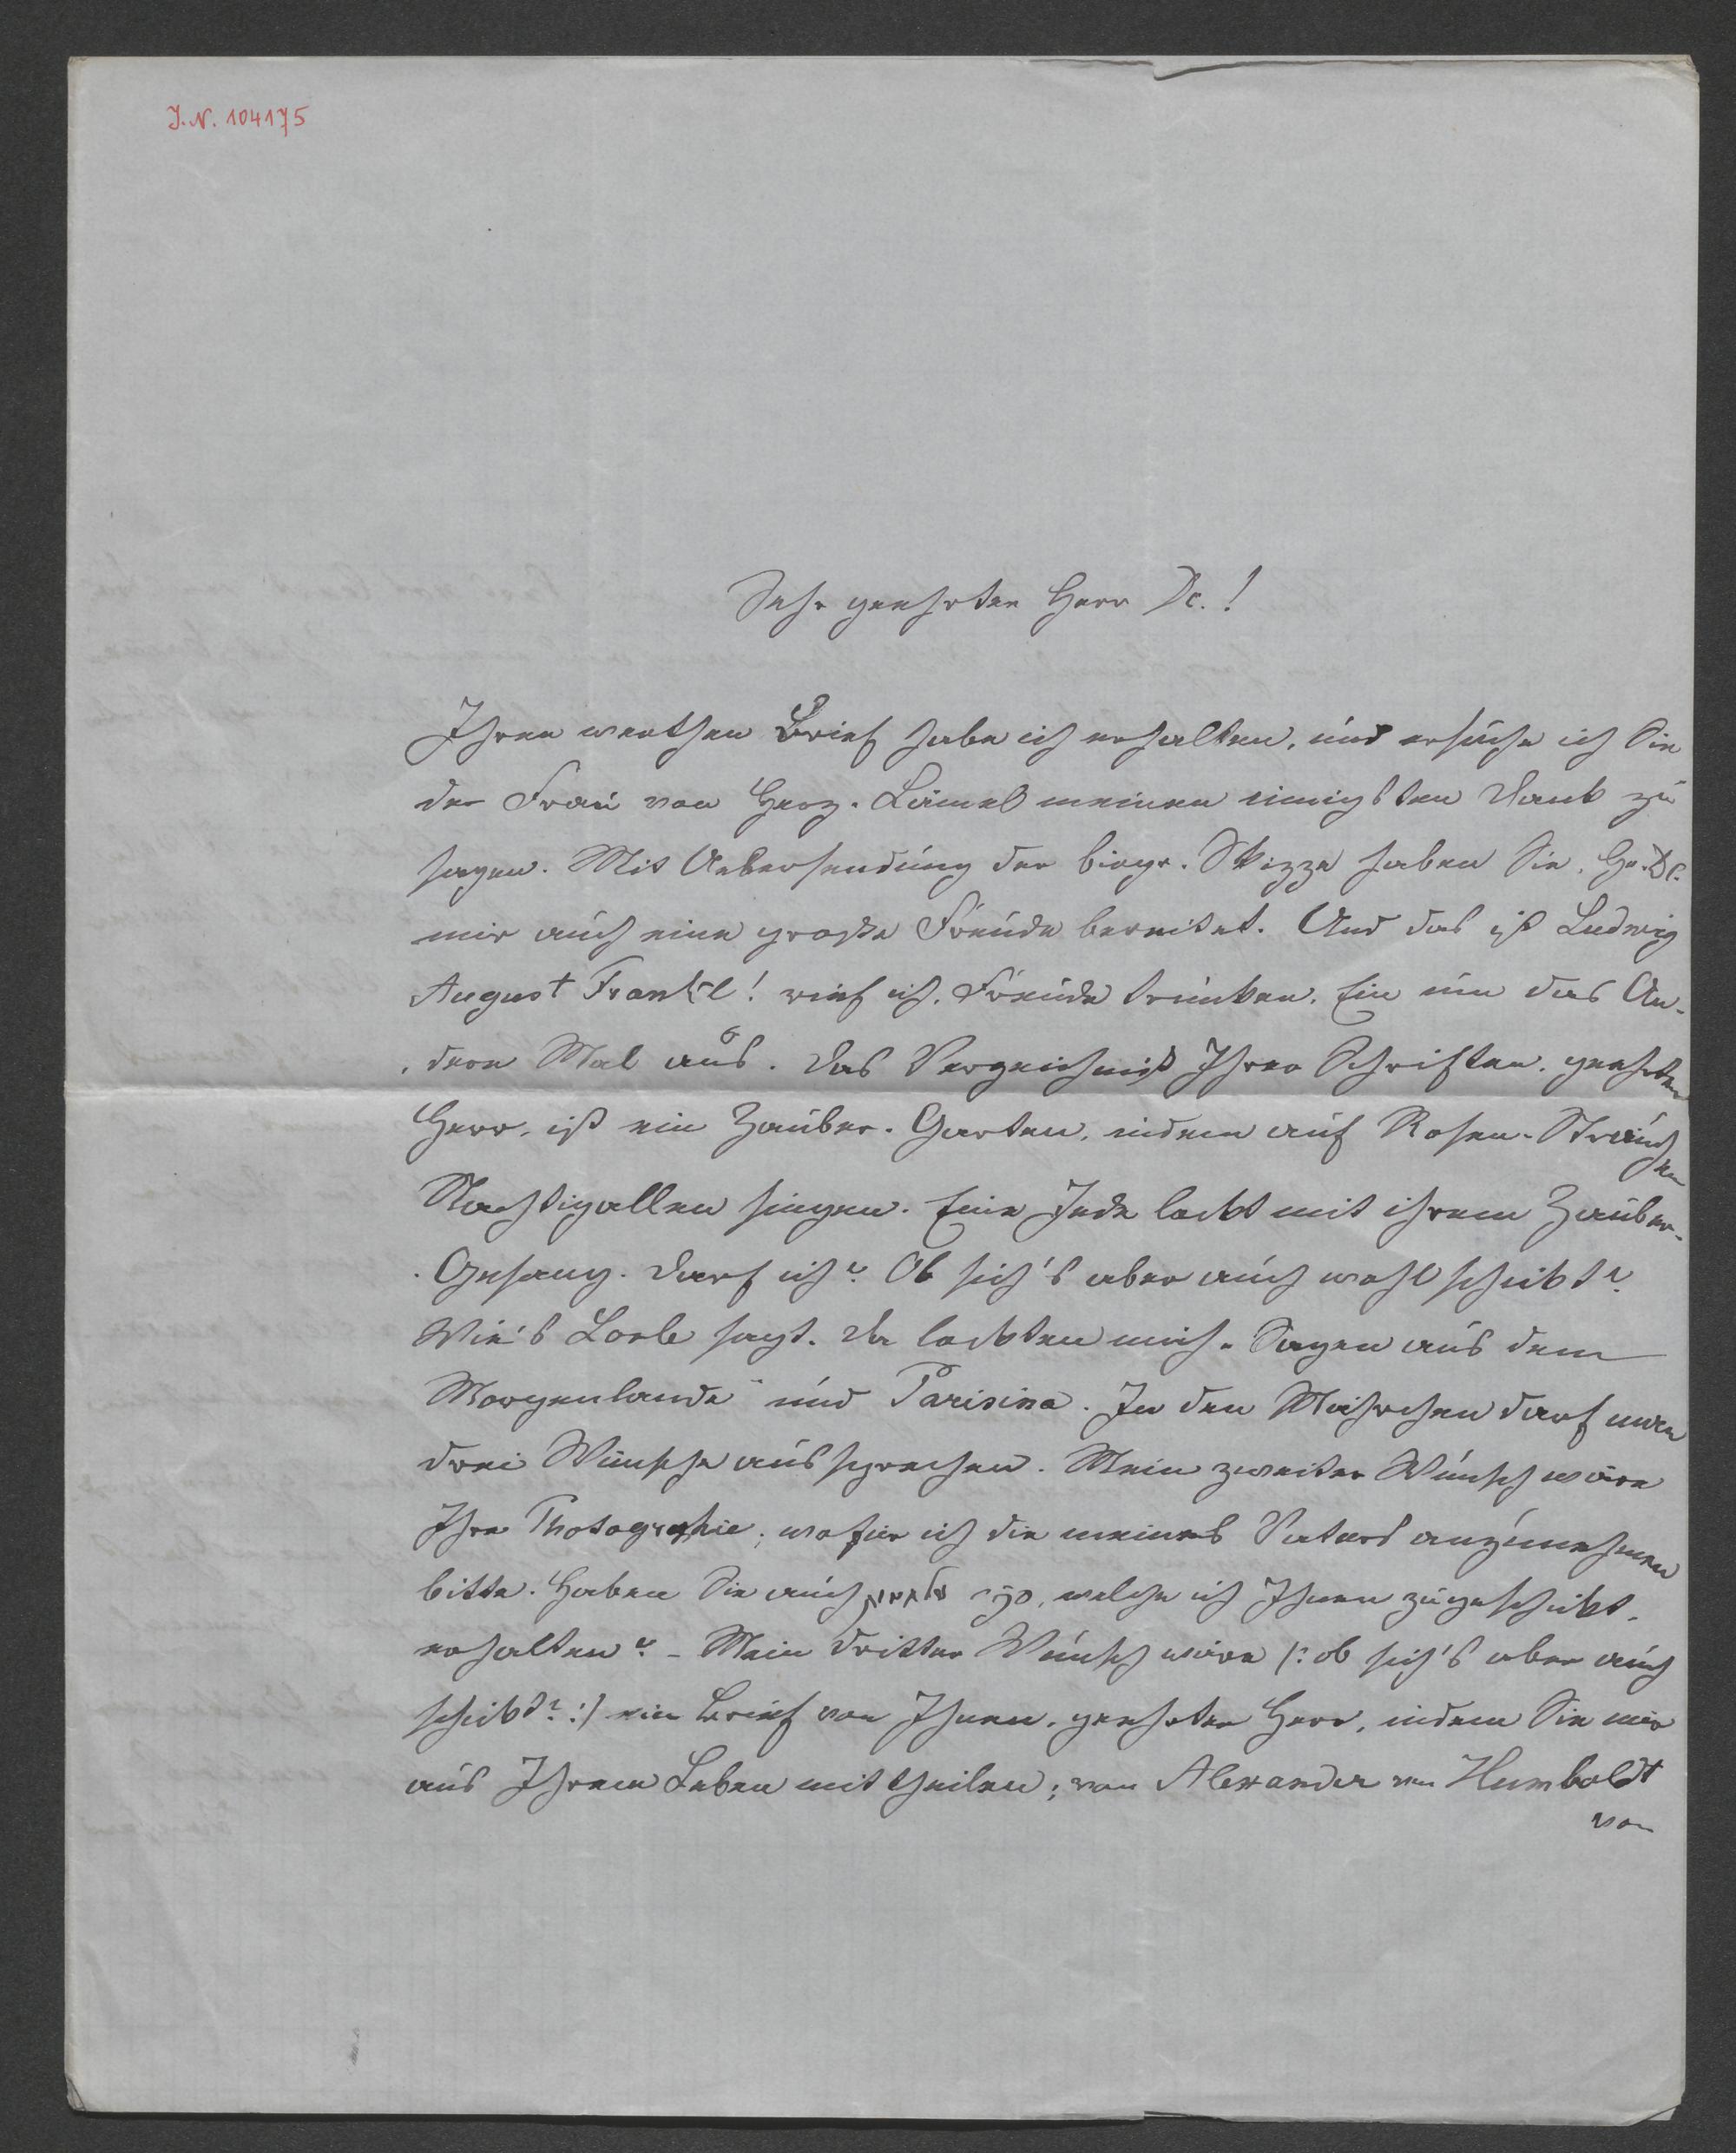 J.N. 104175
Sehr geehrter Herr Dr.!
Ihren werthen Brief habe ich erhalten, und ersuche ich Sie
der Frau von Herz-Lämel meinen innigsten Dank zu
sagen. Mit Uebersendung der biogr. Skizze haben Sie, Hr. Dr.
mir auch eine große Freude bereitet. Und das ist Ludwig
August Frankl! rief ich, Freude trunken, Ein um das An-
dere Mal aus. Das Verzeichniß Ihrer Schriften, geehrter
Herr, ist ein Zauber-Garten, indem auf Rosen-Sträuchen
Nachtigallen singen. Eine Jede lockt mit ihrem Zauber-
Gesang. Darf ich? Ob sich's aber auch wohl schickt?
Wie's Lorle sagt. Da lockten mich „Sagen aus dem
Morgenlande" und Parisina. In den Mährchen darf man
drei Wünsche aussprechen. Mein zweiter Wunsch wäre
Ihre Photographie; wofür ich die meines Vaters anzunehmen
bitte. Haben Sie auch welche ich Ihnen zugeschickt,
erhalten? – Mein dritter Wunsch wäre /: ob sich's aber auch
schickt? :/ ein Brief von Ihnen, geehrter Herr, indem Sie mir
aus Ihrem Leben mittheilen; von Alexander von Humboldt
von